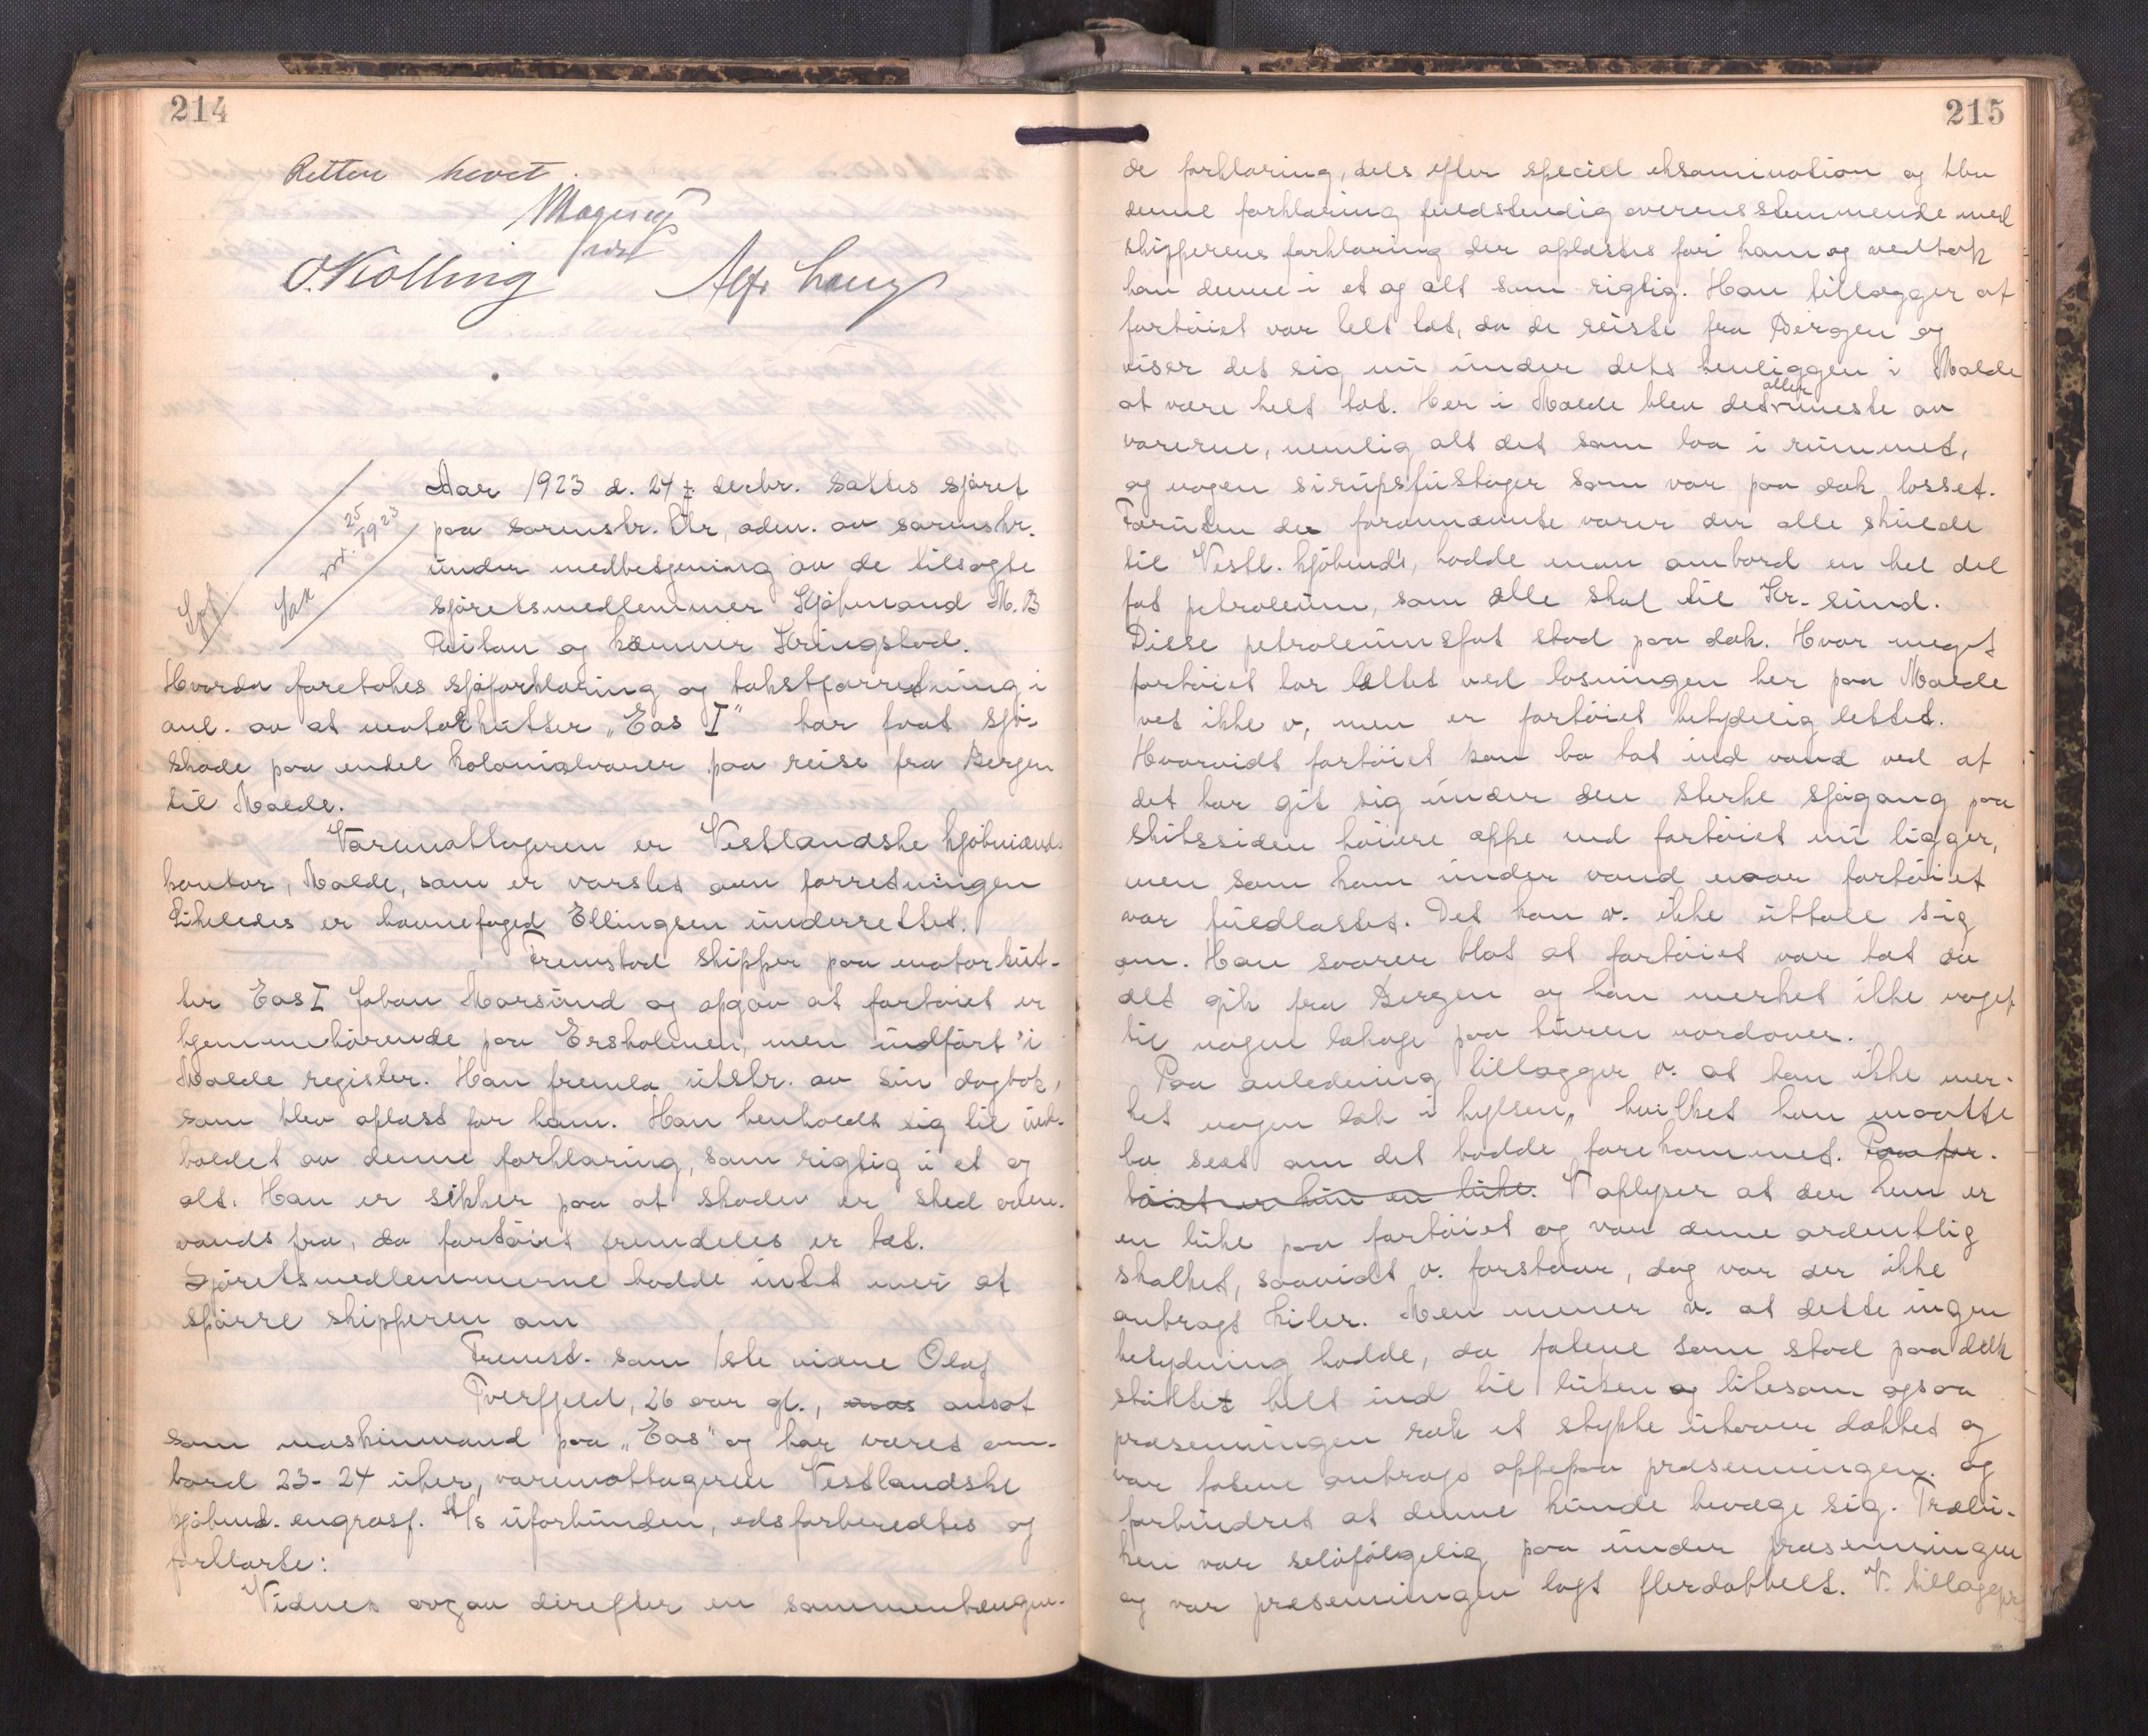 214
Retten hevet.
O. Kolling
Aar 1923 d. 24 decbr. sattes sjøret
paa sorenskr. ktr, adm. av sorenskr.
under medbetjening av de tilsagte
sjøretsmedlemmer Kjøbmand M. B
Reitan og kæmner Kringstad.
Hvorda foretokes sjøforklaring og takstforretning i
anl. av at motorkutter „Eos I" har faat sjø-
skade paa endel kolonialvarer paa reise fra Bergen
til Molde.
Varemottageren er Vestlandske kjøbmænds
kontor, Molde, som er varslet om forretningen
Likeledes er havnefoged Ellingsen underrettet.
Fremstod skipper paa motorkut-
ter Eos I Johan Morsund og opgav at fartøiet er
hjemmehørende paa Ersholmen, men indført i
Molde register. Han fremla utskr. av sin dagbok,
som blev oplæst for ham. Han henholdt sig til ind-
holdet av denne forklaring, som rigtig i et og
alt. Han er sikker paa at skaden er sked oven-
vands fra, da fartøiet fremdeles er tæt.
Sjøretsmedlemmerne hadde intet mer at
spørre skipperen om
Fremst. som 1ste vidne Olaf
Tverfjeld, 26 aar gl., ansat
som maskinmand paa „Eos" og har været om-
bord 23-24 uker, varemottageren Vestlandske
kjøbmd. engrosf. A/s uforbunden, edsforberedtes og
forklarte:
Vidnet avgav direfter en sammenhængen-
215
de forklaring, dels efter speciel eksamination og blev
denne forklaring fuldstendig overensstemmende med
skipperens forklaring der oplæstes for ham og vedtok
han denne i et og alt som rigtig. Han tillægger at
fartøiet var helt tæt, da de reiste fra Bergen og
viser det sig nu under dets henliggen i Molde
at være helt tæt. Her i Molde blev det aller meste av
varerne, nemlig alt det som laa i rummet,
og nogen sirupsfustager som var paa dæk losset.
Foruten de forannævnte varer der alle skulde
til Vestl. kjøbmd's, hadde man ombord en hel del
fat petroleum, som alle skal til Kr.sund.
Disse petroleumsfat stod paa dæk. Hvor meget
fartøiet har lættet ved losningen her paa Molde
vet ikke v, men er fartøiet betydelig lettet.
Hvorvidt fartøiet kan ha tat ind vand ved at
det har git sig under den sterke sjøgang paa
skibssiden høiere oppe end fartøiet nu ligger,
men som kom under vand naar fartøiet
var fuldlastet. Det kan v. ikke uttale sig
om. Han svarer blot at fartøiet var tæt da
det gik fra Bergen og han merket ikke noget
til nogen lækage paa turen nordover.
Paa anledning tillægger v. at han ikke mer-
ket nogen læk i hylsen, hvilket han maatte
ha seet om det hadde forekommet. Paa far-
tøiet er kun en luke. V oplyser at der kun er
en luke paa fartøiet og var denne ordentlig
skalket, saavidt v. forstaar, dog var der ikke
anbragt kiler. Men mener v. at dette ingen
betydning hadde, da fatene som stod paa dæk
støttet helt ind til luken og likesom ogsaa
presenningen rak et stykke utover dækket og
var fatene anbragt oppepaa presenningen og
forhindret at denne kunde bevæge sig. Trælu-
ken var selvfølgelig paa under presenningen
og var presenningen lagt flerdobbelt. V. tillægger